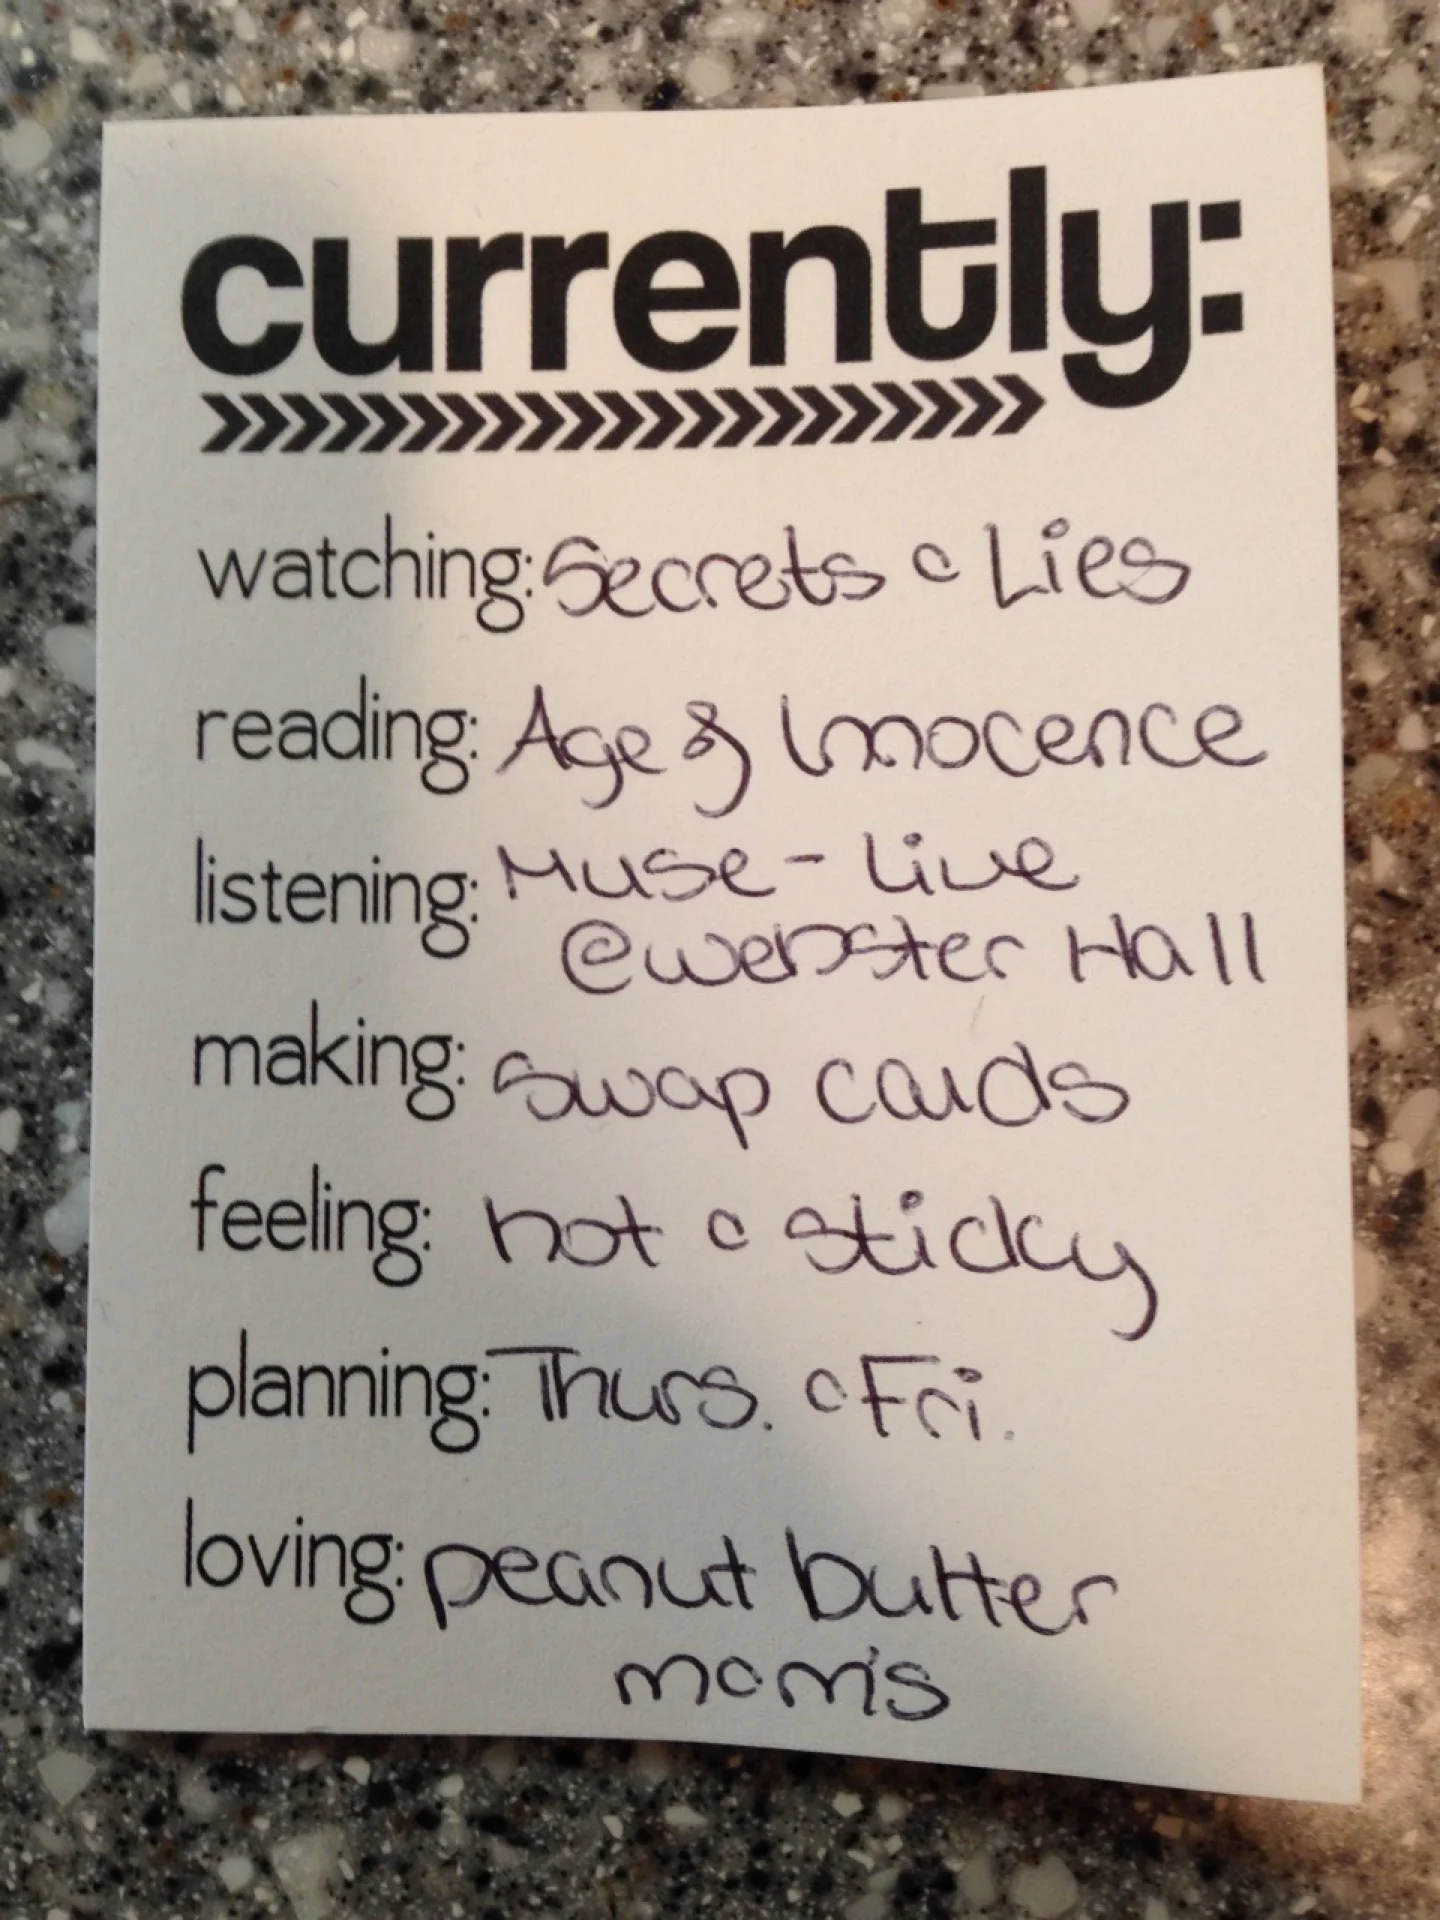 currently:
watching: Secrets & Lies
reading: Age of Innocence
listening: Muse - Live
@Webster Hall
making: swap cards
feeling: hot & sticky
planning: Thurs. & Fri.
loving: peanut butter
mom's